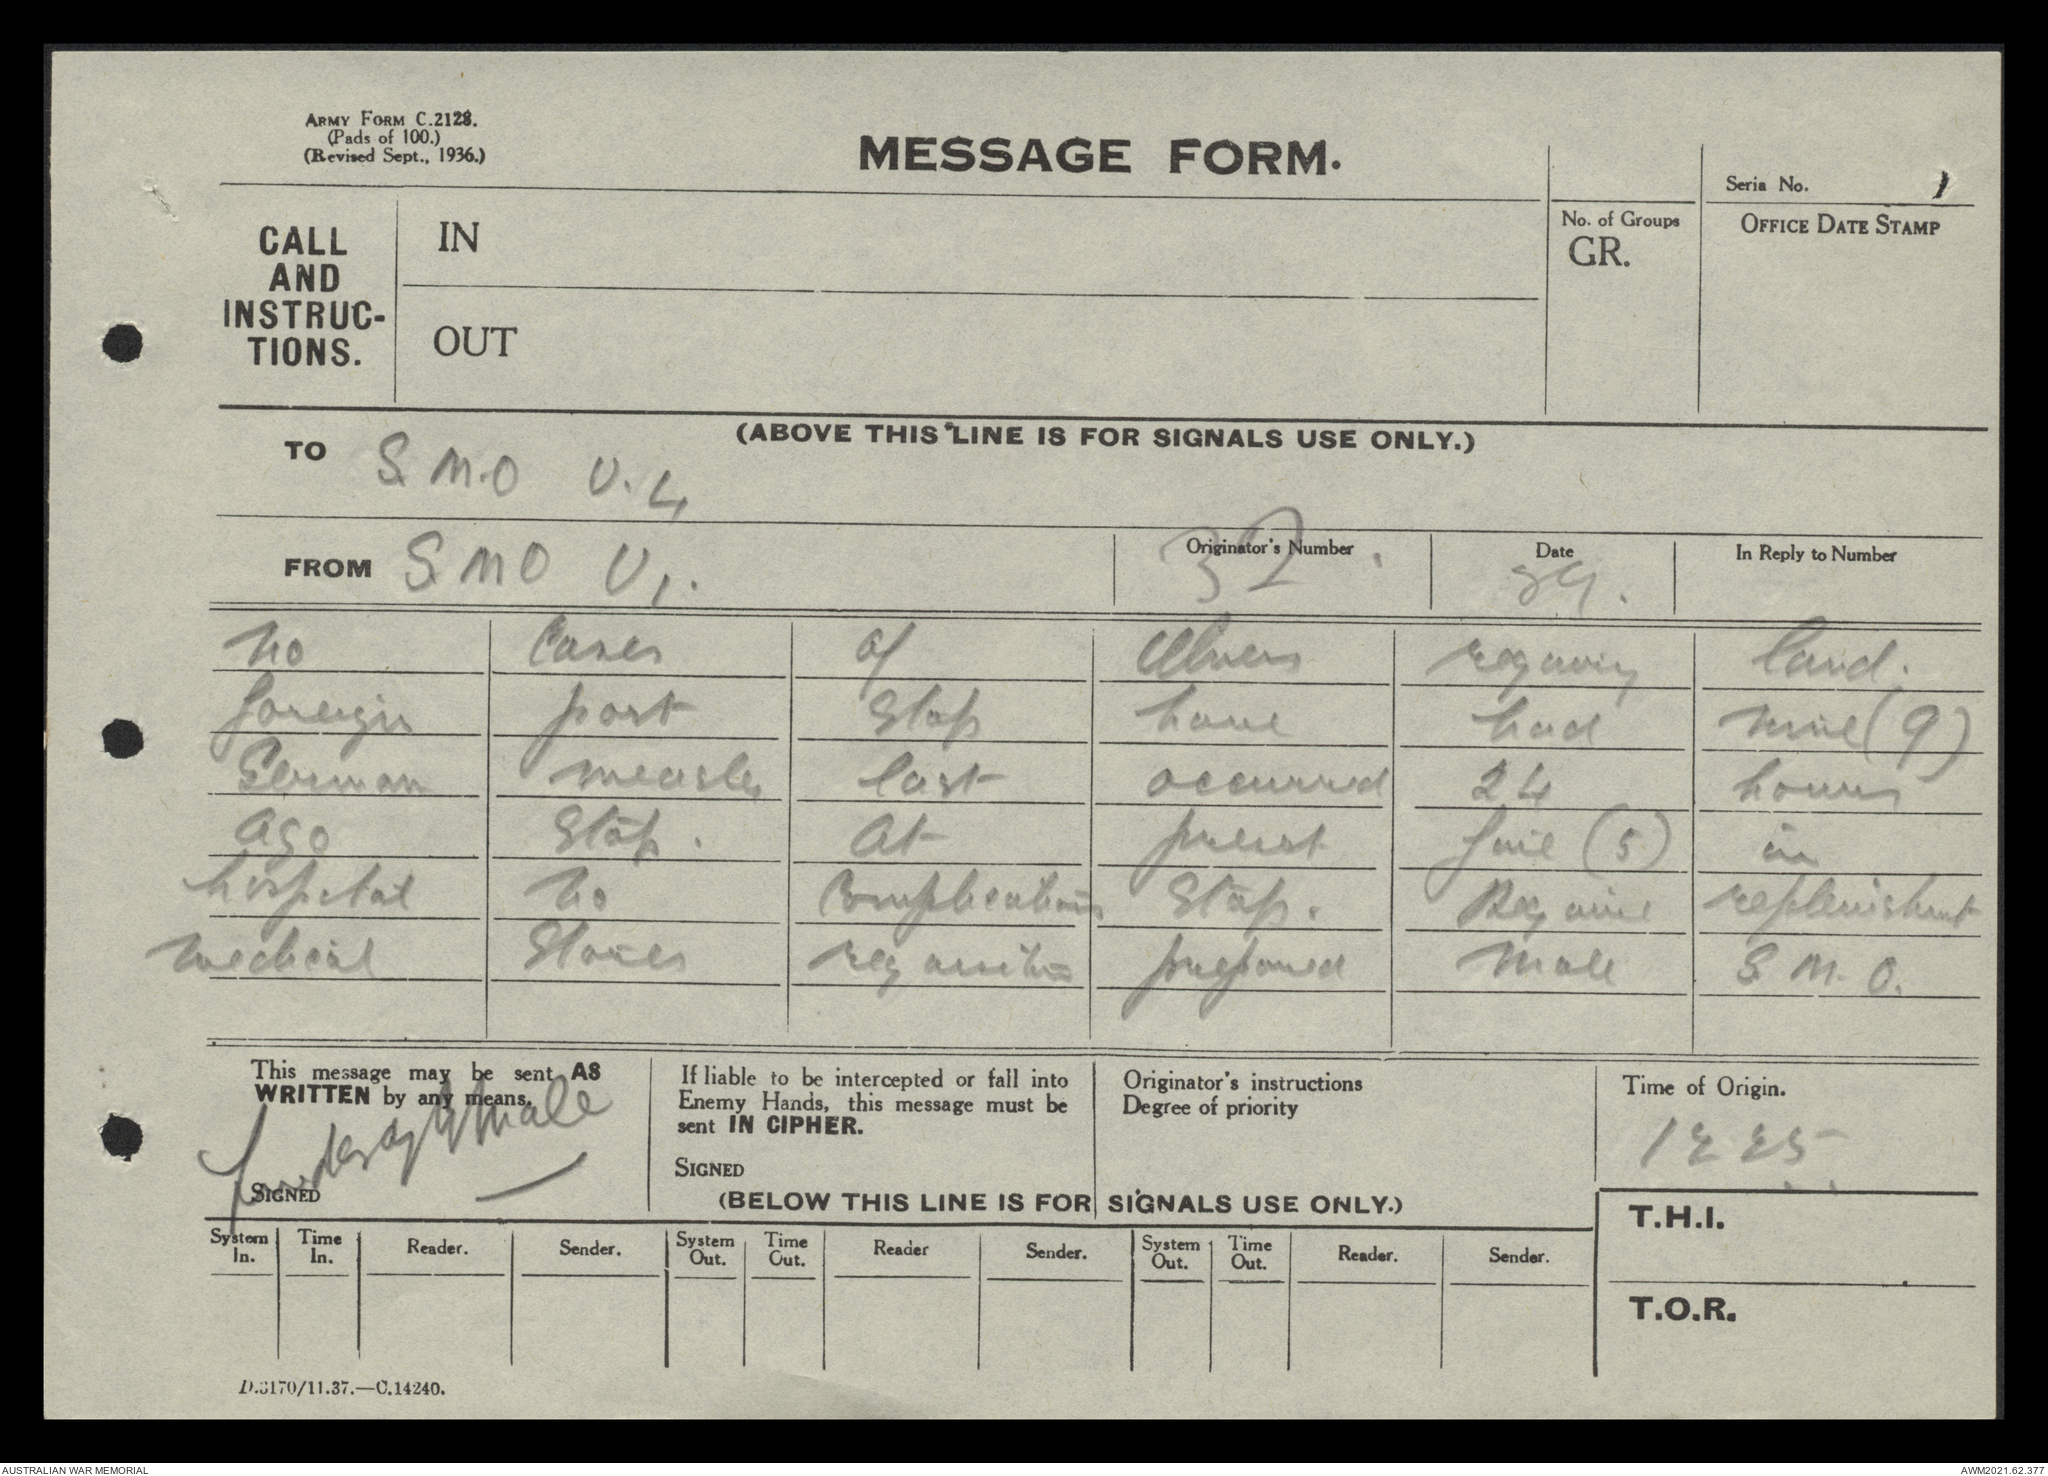 ARMY FORM C.2128.
(Pads of 100.)
(Revised Sept., 1936.)
MESSAGE FORM.
Seria No. 1
CALL AND INSTRUC-TIONS.
IN
OUT
No. of Groups
GR.
OFFICE DATE STAMP
(ABOVE THIS LINE IS FOR SIGNALS USE ONLY.)
TO S.M.O U.4
FROM S.M.O U1.
Originator's Number 32.
Date 29.
In Reply to Number
No Cases of illness requiring land.
foreign port Stop have had nine (9)
German measles last occurred 24 hours
ago Stop. At present five (5) in
hospital No Complications Stop. Require replenishment
medical Stores requisition prepared Male S.M.O.
This message may be sent AS
WRITTEN by any means.
SIGNED Male
If liable to be intercepted or fall into
Enemy Hands, this message must be
sent IN CIPHER.
SIGNED
Originator's instructions
Degree of priority
Time of Origin.
(BELOW THIS LINE IS FOR SIGNALS USE ONLY.)
T.H.I.
System In. Time In. Reader. Sender. System Out. Time Out. Reader Sender. System Out. Time Out. Reader. Sender.
T.O.R.
D.3170/11.37.—C.14240.
AUSTRALIAN WAR MEMORIAL
AWM2021.62.377